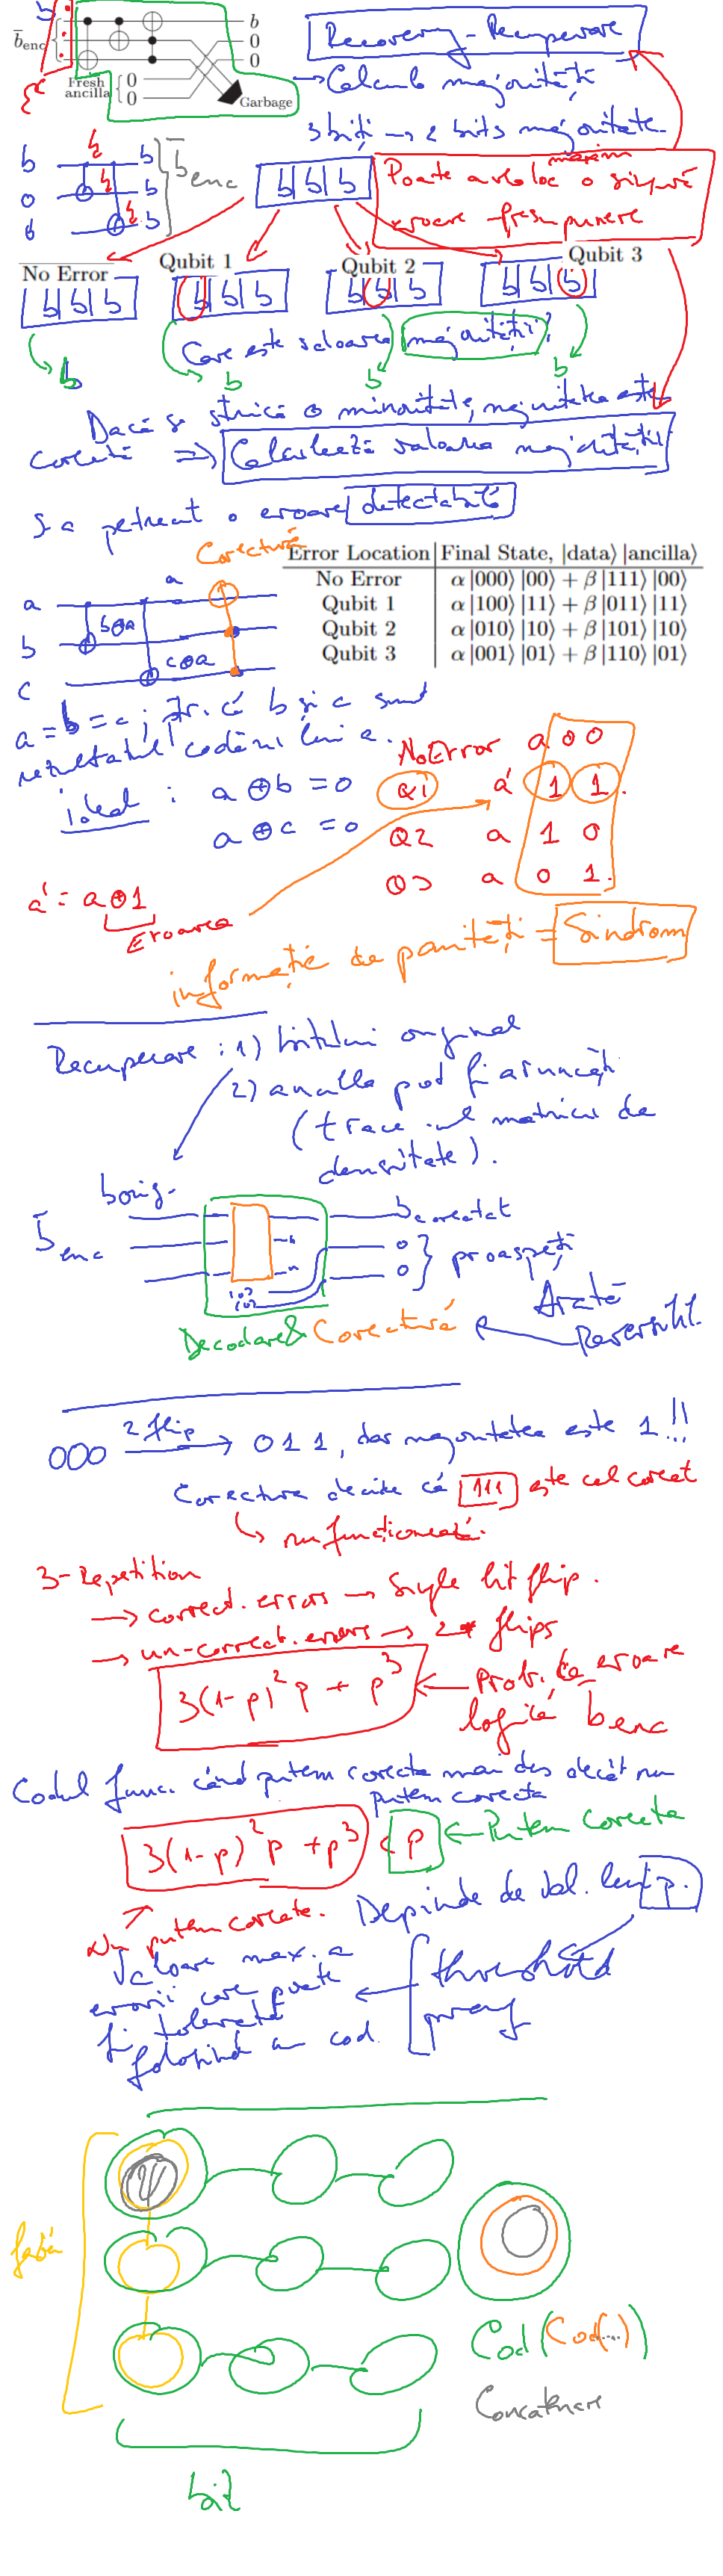 b
b̄enc
b
0
0
Fresh ancilla { 0 0
Garbage
Recovery - Recuperare
→ Calculul majorității
3 biți → 2 bits majoritate
b b
0 b b̄enc
0 b
b|b|b
Poate avea loc o singură
maxim
eroare - presupunere
No Error
Qubit 1
Qubit 2
Qubit 3
b|b|b
b|b|b
b|b|b
b|b|b
Care este valoarea majorității?
b
b
b
b
Dacă se strică o minoritate, majoritatea este
corectă ⇒ Calculează valoarea majorității
S-a petrecut o eroare detectabilă
Corectură
Error Location | Final State, |data⟩ |ancilla⟩
No Error α |000⟩ |00⟩ + β |111⟩ |00⟩
Qubit 1 α |100⟩ |11⟩ + β |011⟩ |11⟩
Qubit 2 α |010⟩ |10⟩ + β |101⟩ |10⟩
Qubit 3 α |001⟩ |01⟩ + β |110⟩ |01⟩
a
a
b b⊕a
c c⊕a
a = b = c ; că b și c sunt
rezultatul codării lui a.
ideal : a ⊕ b = 0
a ⊕ c = 0
No Error a 0 0
Q1 a' 1 1.
Q2 a 1 0
Q3 a 0 1.
a' = a⊕1
Eroarea
informație de parități = Sindrom
Recuperare : 1) bitului original
2) ancilla pot fi aruncați
(trace-ul matricii de
densitate).
b orig.
b̄enc
b corectat
0
0 } proaspeți
Decodare & Corectură
Arată
Reversibil.
000 2 flip → 011, dar majoritatea este 1!!
Corectura decide că 111 este cel corect
↳ nu funcționează.
3-Repetition
→ correct. errors → Single bit flip.
→ un-correct. errors → 2 flips
3(1-p)²p + p³ ← Prob. de eroare
logică b enc
Codul func. când putem corecta mai des decât nu
putem corecta
3(1-p)²p + p³ < p ← Putem corecta
Nu putem corecta.
Depinde de val. lui p.
Valoare max. a
erorii care poate
fi tolerată
folosind un cod.
threshold
prag
ψ
fază
Cod(Cod(...))
Concatenare
bit